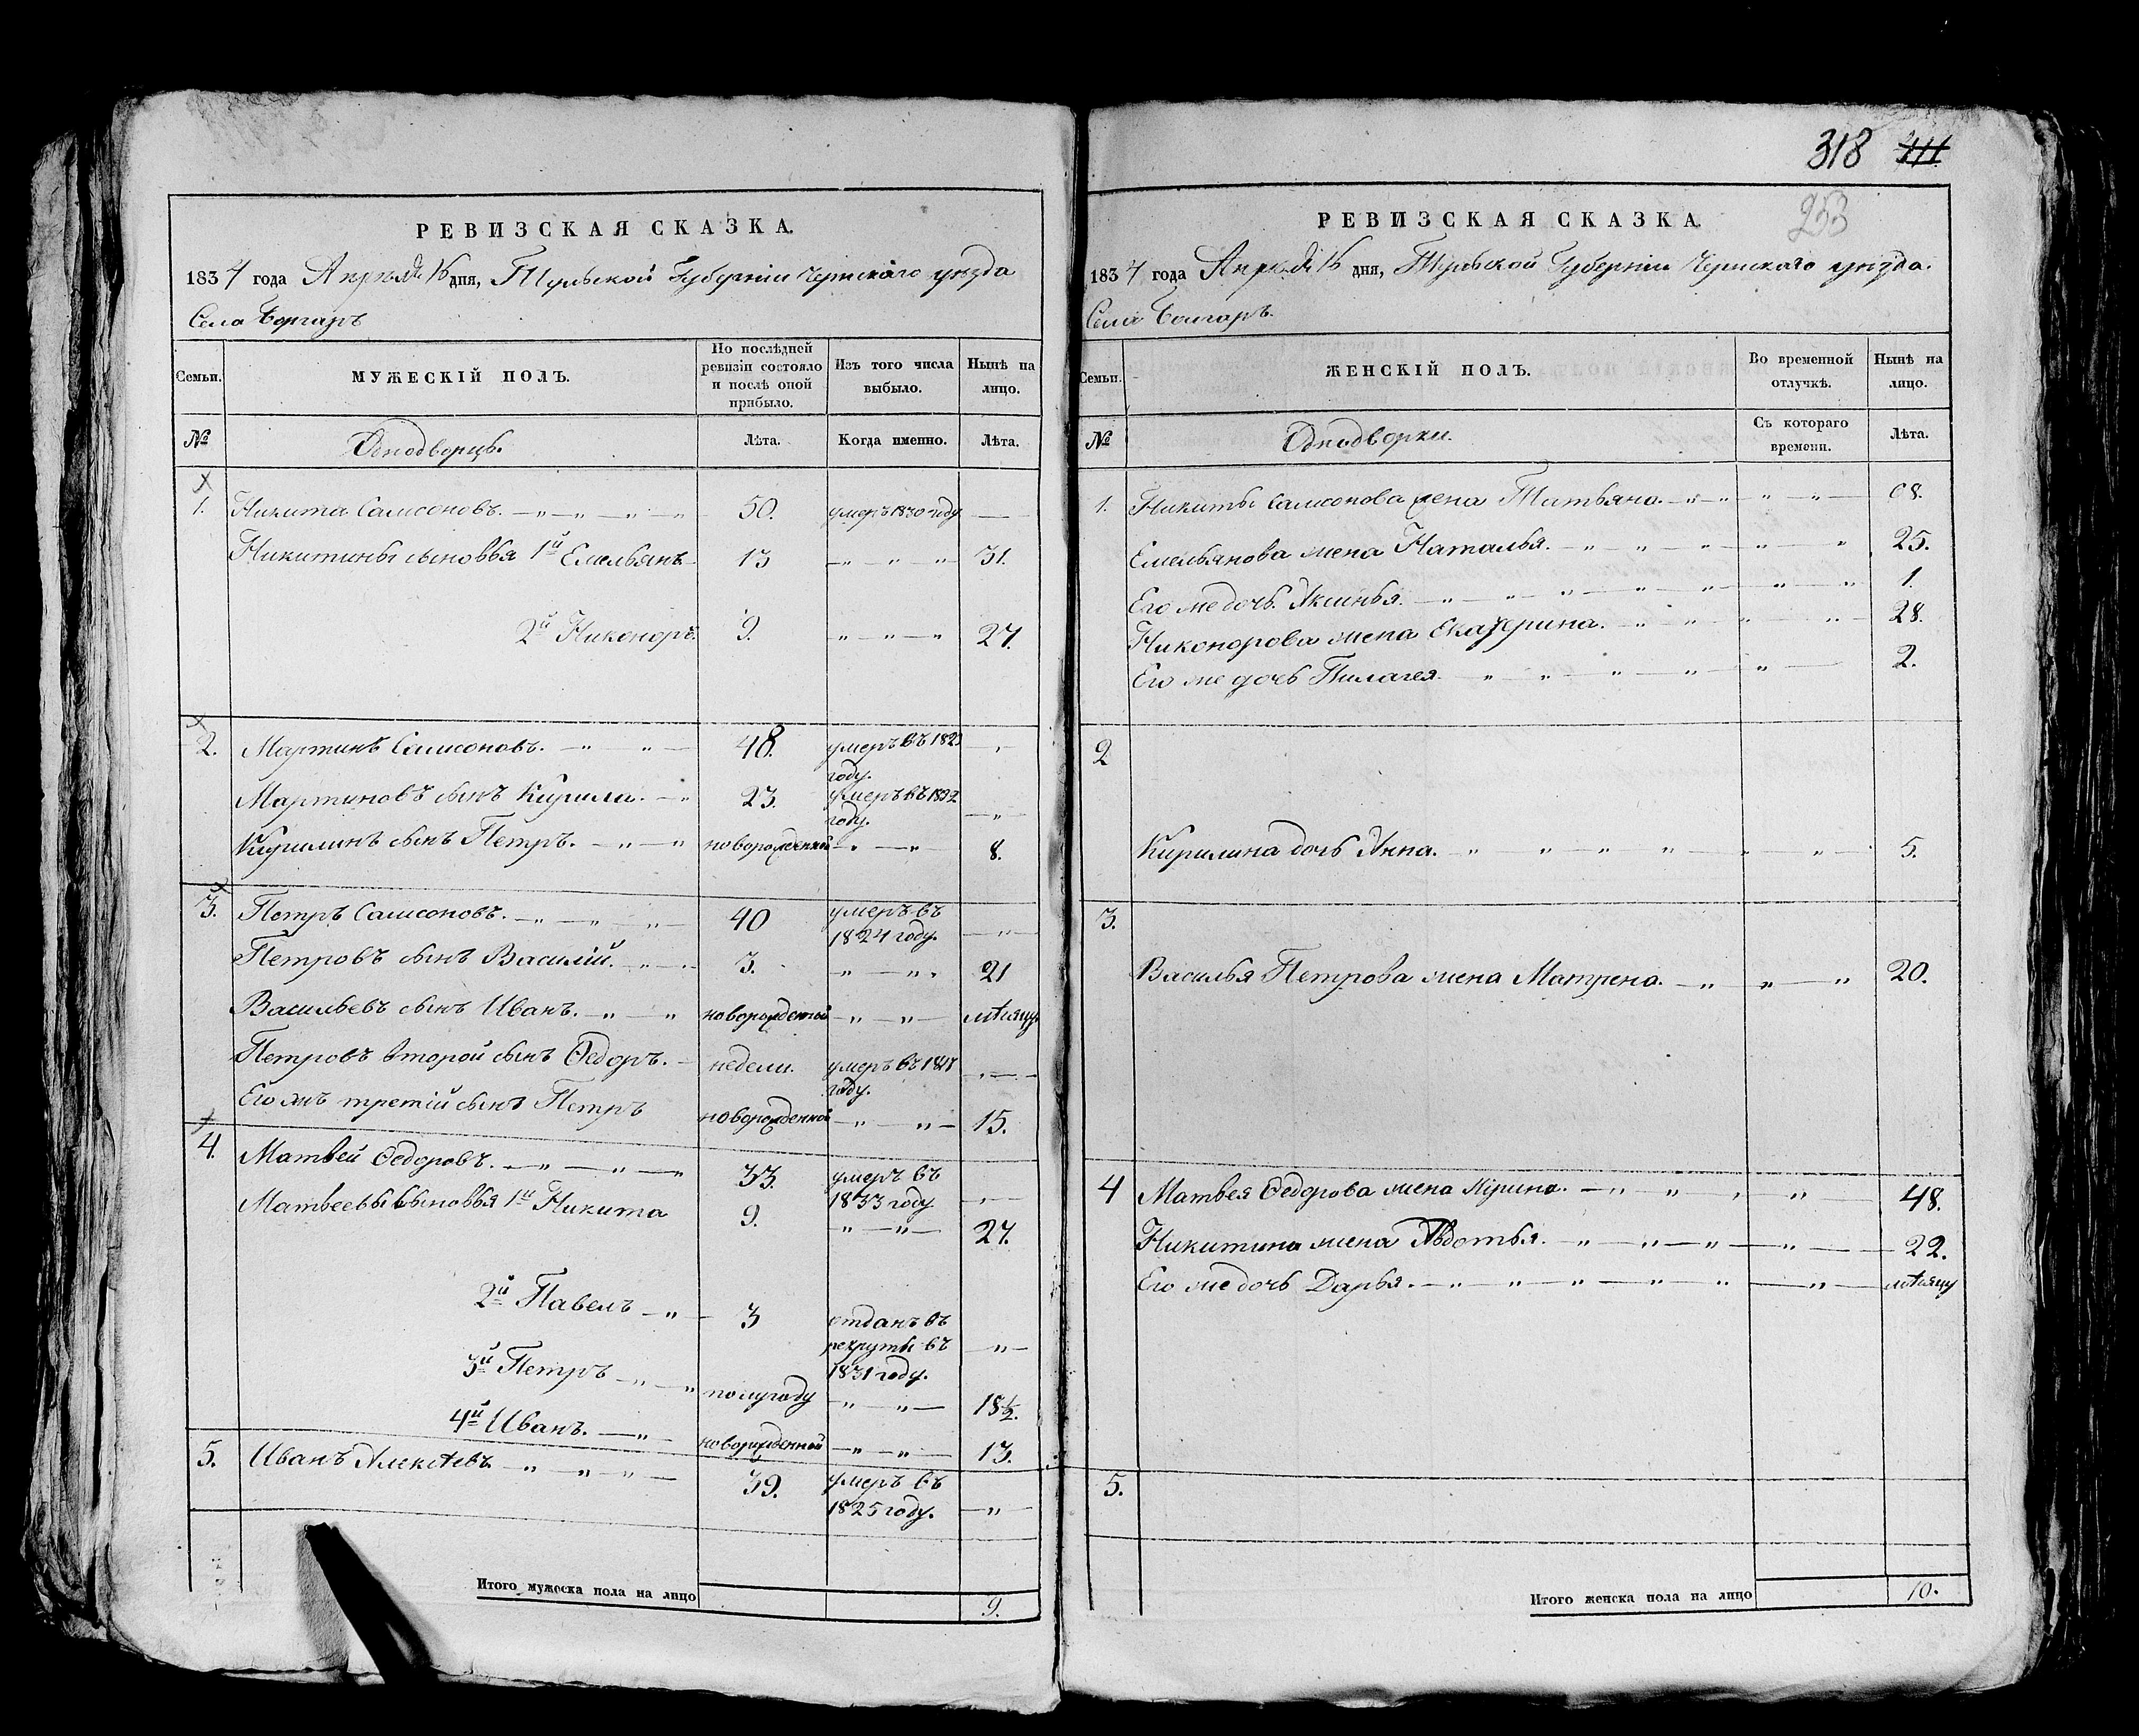 РЕВИЗСКАЯ СКАЗКА.
1834 года Апреля 16 дня, Тульской Губернiи Чернскаго уезда
Села
МУЖЕСКIЙ ПОЛЪ.
Семьи.
По послѣдней ревизiи состояло и послѣ оной прибыло.
Изъ того числа выбыло.
Нынѣ на лицо.
№
Однодворцы.
Лѣта.
Когда именно.
Лѣта.
1. Никита Самсоновъ. 50. умеръ 1830 году —
Никитины сыновья 1й Емельянъ 13 31.
2й Никоноръ. 9. 27.
2. Мартинъ Самсоновъ. 48. умеръ въ году.
Мартиновъ сынъ Кирила. 23. умеръ въ году.
Кирилинъ сынъ Петръ. новорожденной 8.
3. Петръ Самсоновъ. 40 умеръ въ 1824 году.
Петровъ сынъ Василiй. 3. 21
Васильевъ сынъ Иванъ. новорожденной мѣсяцу
Петровъ второй сынъ Ѳедоръ. недели. умеръ въ году.
Его жъ третiй сынъ Петръ новорожденной 15.
4. Матвей Ѳедоровъ. 33. умеръ въ 1833 году
Матвеевы сыновья 1й Никита 9. 27.
2й Павелъ 3 отданъ въ рекруты въ 1831 году.
3й Петръ полугоду 18½.
4й Иванъ. новорожденной 13.
5. Иванъ Алексѣевъ 39. умеръ въ 1825 году.
Итого мужеска пола на лицо 9.
318 411.
253
РЕВИЗСКАЯ СКАЗКА.
1834 года Апреля 16 дня, Тульской Губернiи Чернскаго уезда.
Села
Семьи.
ЖЕНСКIЙ ПОЛЪ.
Во временной отлучкѣ.
Нынѣ на лицо.
№
Однодворки.
Съ котораго времени.
Лѣта.
1. Никиты Самсонова жена Татьяна. 68.
Емельянова жена Наталья. 25.
Его же дочь Аксинья. 1.
Никонорова жена Екатерина. 28.
Его же дочь Пилагея 2.
2
Кирилина дочь Анна. 5.
3.
Василья Петрова жена Матрена. 20.
4 Матвея Ѳедорова жена Ирина. 48.
Никитина жена Авдотья. 22.
Его же дочь Дарья. мѣсяцу
5.
Итого женска пола на лицо 10.